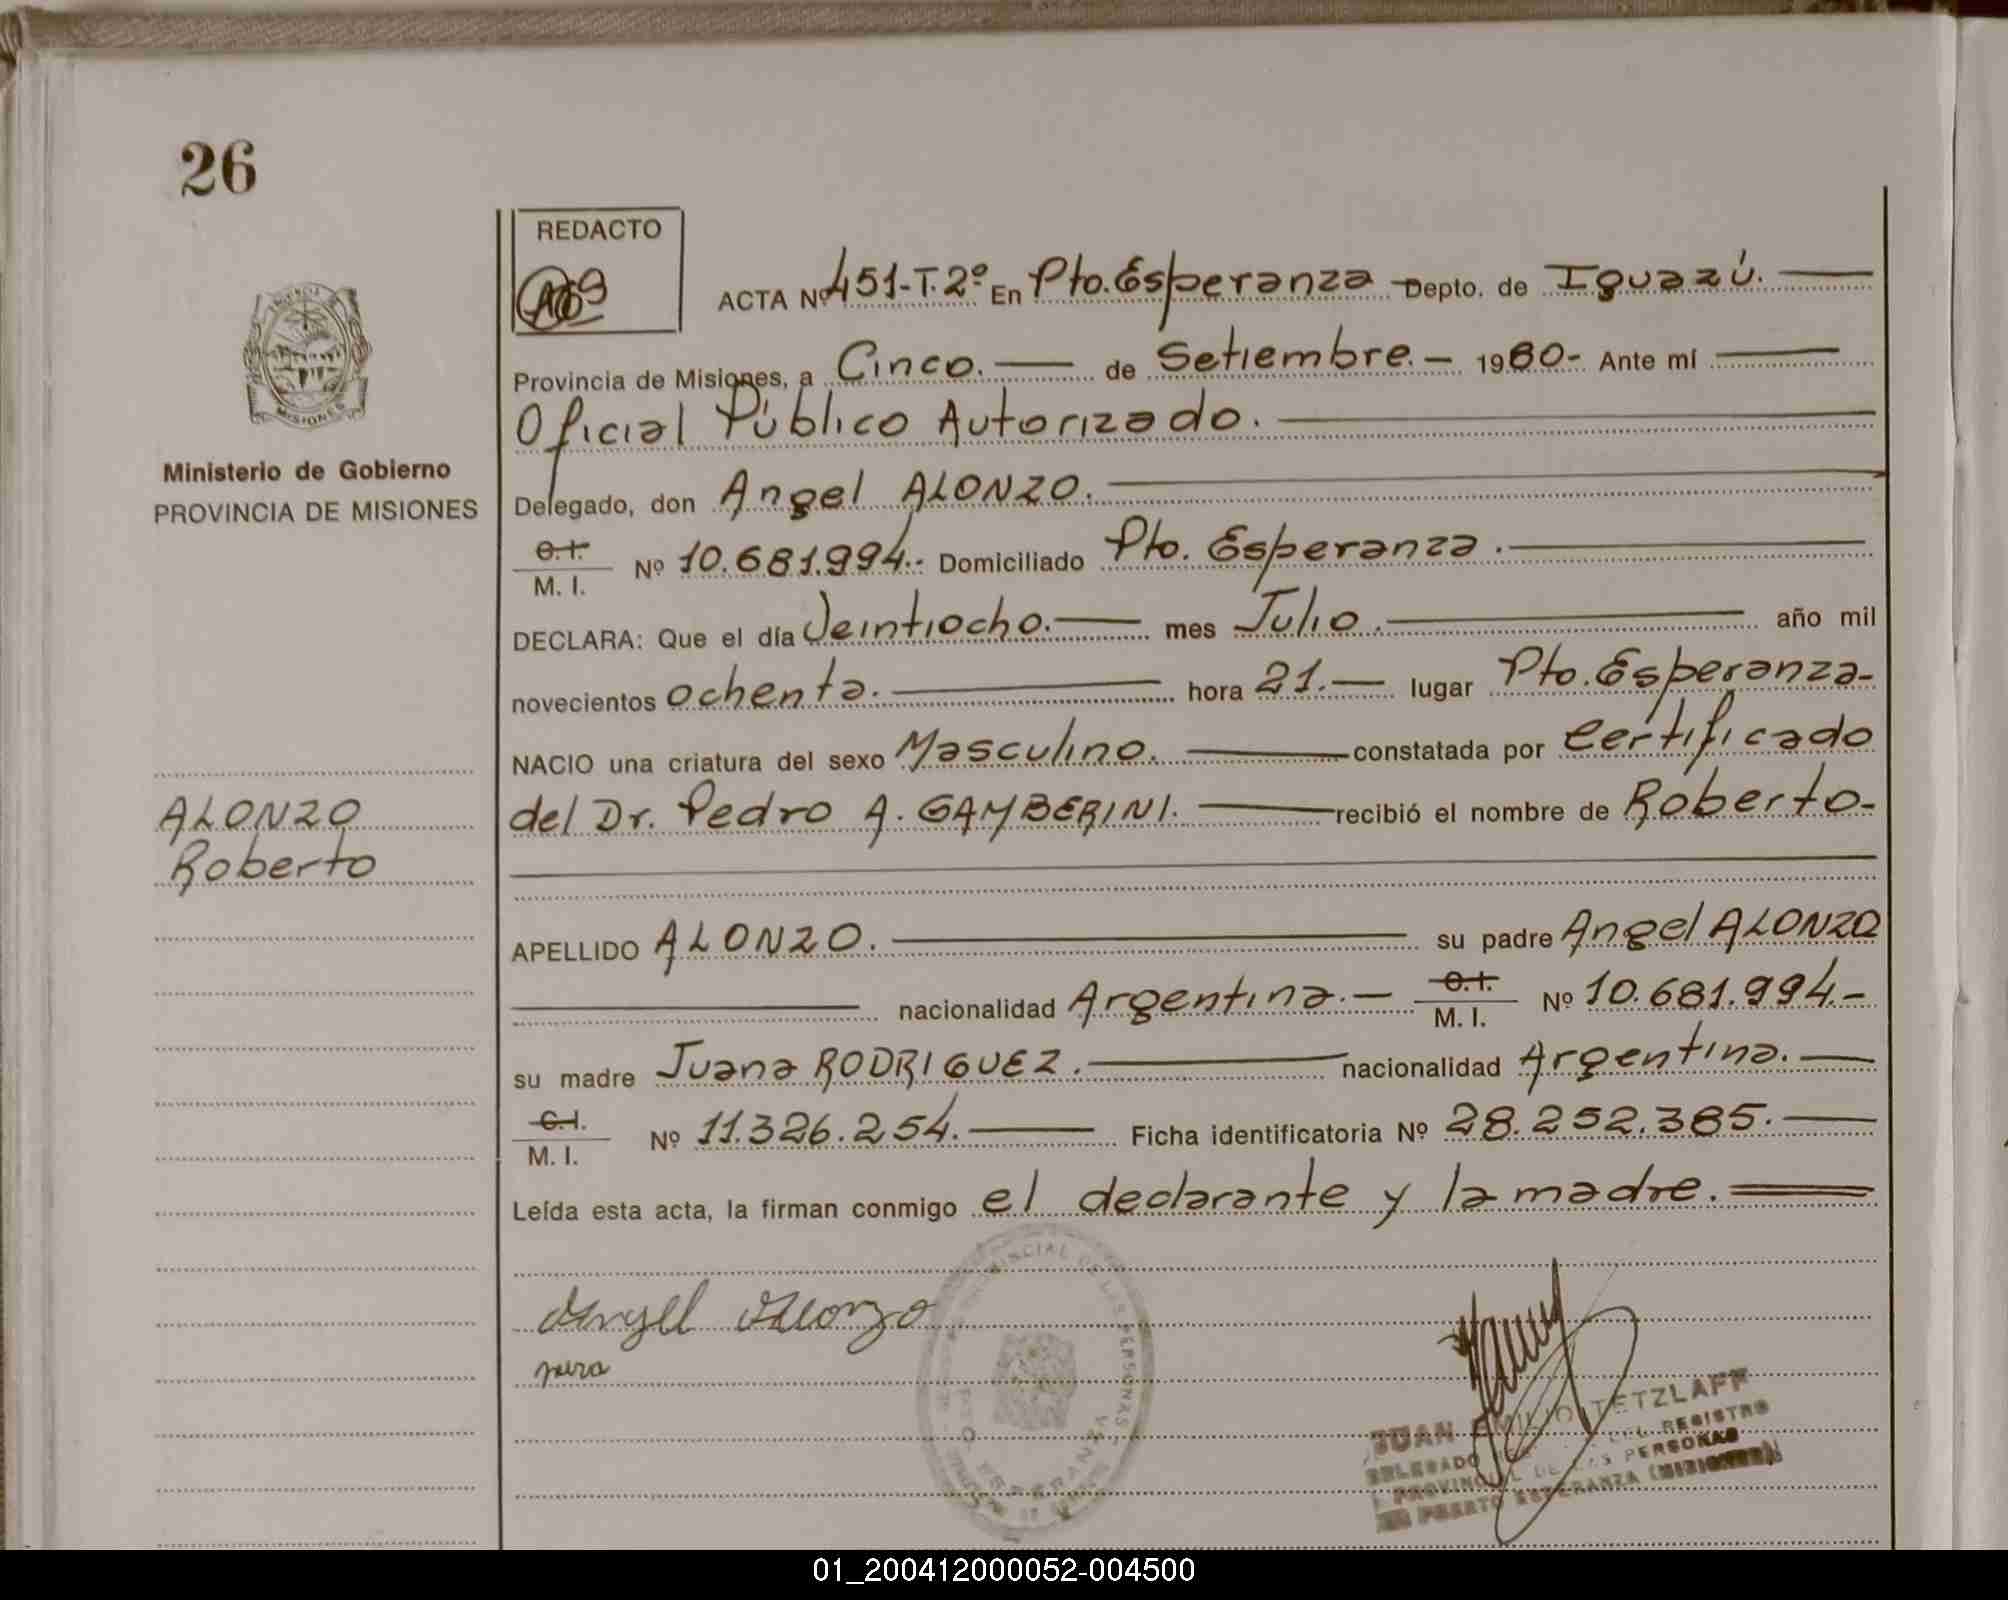 26
REDACTO
ACTA Nº 451-T.2º En Pto. Esperanza Depto. de Iguazú.
Provincia de Misiones, a Cinco. de Setiembre. 1980- Ante mí
Oficial Público Autorizado.
Ministerio de Gobierno
PROVINCIA DE MISIONES
Delegado, don Angel ALONZO.
C.I.
M. I. Nº 10.681.994.- Domiciliado Pto. Esperanza.
DECLARA: Que el día Veintiocho. mes Julio. año mil
novecientos ochenta. hora 21.- lugar Pto. Esperanza-
NACIO una criatura del sexo Masculino. constatada por Certificado
del Dr. Pedro A. GAMBERINI. recibió el nombre de Roberto-
ALONZO
Roberto
APELLIDO ALONZO. su padre Angel ALONZO
nacionalidad Argentina.- C.I. M. I. Nº 10.681.994.-
su madre Juana RODRIGUEZ. nacionalidad Argentina.
C.I.
M. I. Nº 11.326.254. Ficha identificatoria Nº 28.252.385.
Leída esta acta, la firman conmigo el declarante y la madre.
Angel Alonzo
JUAN EMILIO TETZLAFF
DELEGADO DEL REGISTRO
PROVINCIAL DE LAS PERSONAS
PUERTO ESPERANZA (MISIONES)
01_200412000052-004500